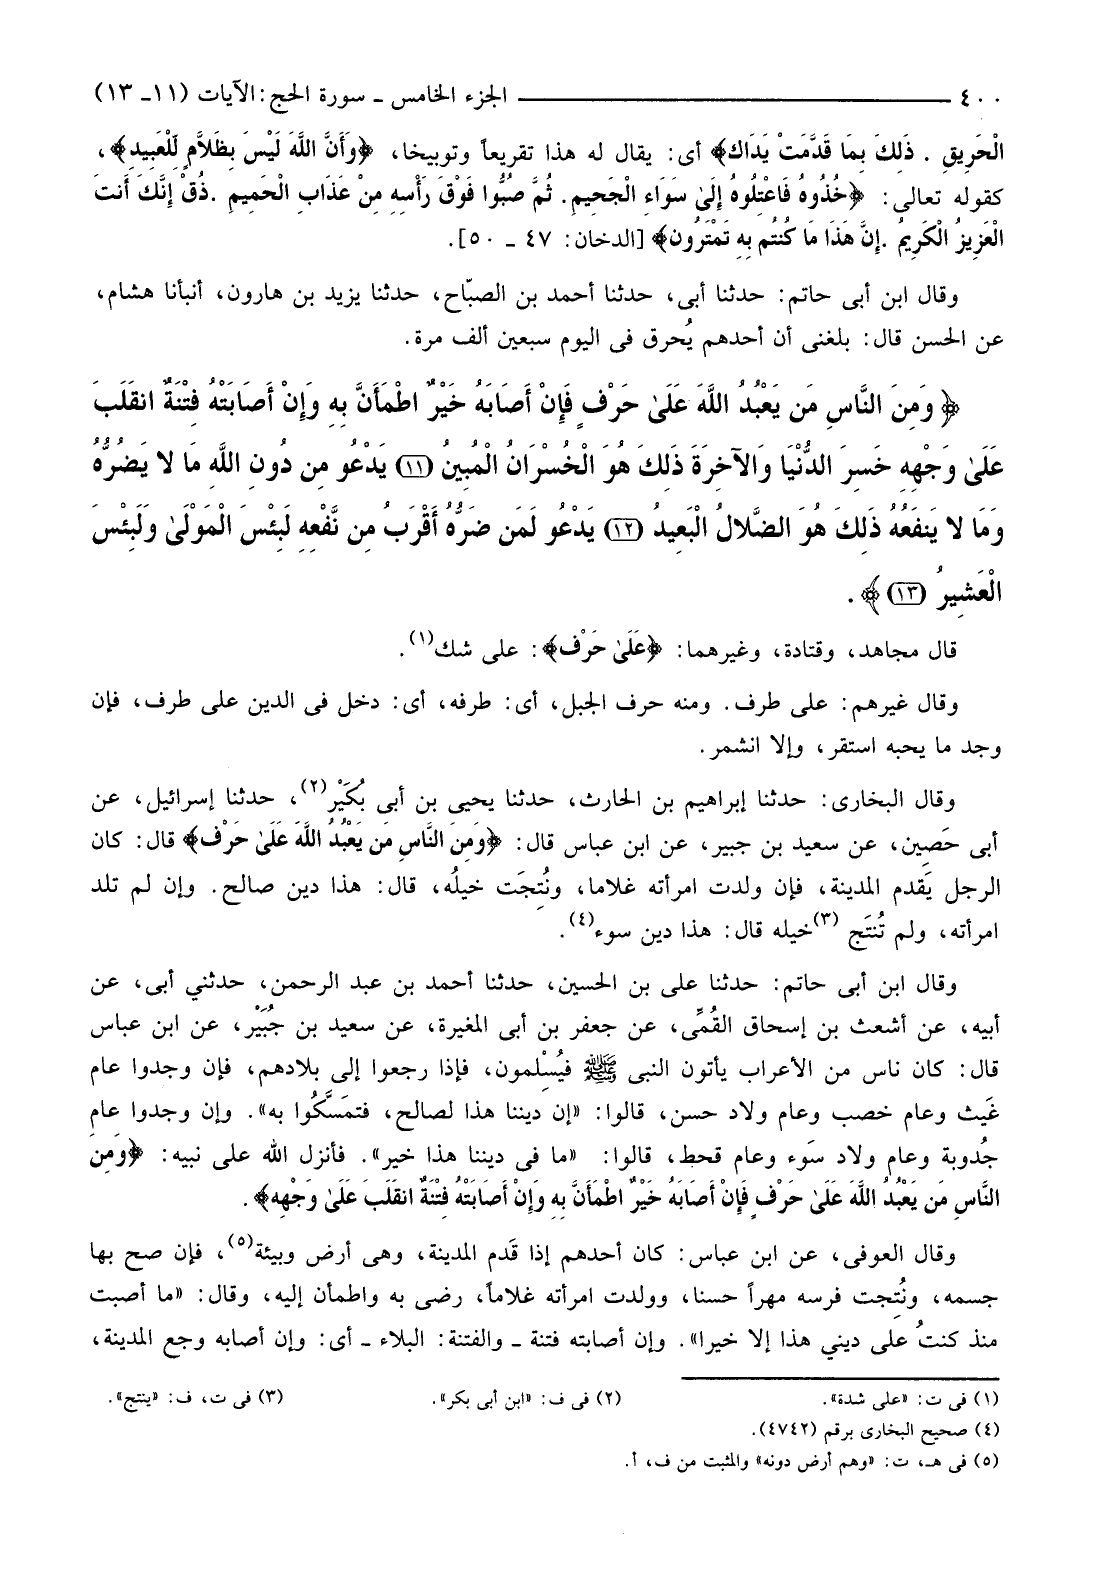 ٤٠٠ ــــــ الجزء الخامس ـ سورة الحج: الآيات (١١ـ ١٣)
الْحَرِيقِ . ذَلِكَ بِمَا قَدَّمَتْ يَدَاكَ﴾ أى: يقال له هذا تقريعاً وتوبيخا، ﴿وَأَنَّ اللَّهَ لَيْسَ بِظَلاَّمٍ لِّلْعَبِيدِ﴾،
كقوله تعالى: ﴿خُذُوهُ فَاعْتِلُوهُ إِلَىٰ سَوَاءِ الْجَحِيمِ. ثُمَّ صُبُّوا فَوْقَ رَأْسِهِ مِنْ عَذَابِ الْحَمِيمِ .ذُقْ إِنَّكَ أَنتَ
الْعَزِيزُ الْكَرِيمُ .إِنَّ هَذَا مَا كُنتُم بِهِ تَمْتَرُونَ﴾ [الدخان: ٤٧ ـ ٥٠].
وقال ابن أبى حاتم: حدثنا أبى، حدثنا أحمد بن الصبّاح، حدثنا يزيد بن هارون، أنبأنا هشام،
عن الحسن قال: بلغنى أن أحدهم يُحرق فى اليوم سبعين ألف مرة.
﴿ وَمِنَ النَّاسِ مَن يَعْبُدُ اللَّهَ عَلَىٰ حَرْفٍ فَإِنْ أَصَابَهُ خَيْرٌ اطْمَأَنَّ بِهِ وَإِنْ أَصَابَتْهُ فِتْنَةٌ انقَلَبَ
عَلَىٰ وَجْهِهِ خَسِرَ الدُّنْيَا وَالآخِرَةَ ذَلِكَ هُوَ الْخُسْرَانُ الْمُبِينُ (١١) يَدْعُو مِن دُونِ اللَّهِ مَا لا يَضُرُّهُ
وَمَا لا يَنفَعُهُ ذَلِكَ هُوَ الضَّلالُ الْبَعِيدُ (١٢) يَدْعُو لَمَن ضَرُّهُ أَقْرَبُ مِن نَّفْعِهِ لَبِئْسَ الْمَوْلَىٰ وَلَبِئْسَ
الْعَشِيرُ (١٣)﴾ .
قال مجاهد، وقتادة، وغيرهما: ﴿عَلَىٰ حَرْف﴾: على شك(١).
وقال غيرهم: على طرف. ومنه حرف الجبل، أى: طرفه، أى: دخل فى الدين على طرف، فإن
وجد ما يحبه استقر، وإلا انشمر.
وقال البخارى: حدثنا إبراهيم بن الحارث، حدثنا يحيى بن أبى بُكَيْر(٢)، حدثنا إسرائيل، عن
أبى حَصِين، عن سعيد بن جبير، عن ابن عباس قال: ﴿وَمِنَ النَّاسِ مَن يَعْبُدُ اللَّهَ عَلَىٰ حَرْف﴾ قال: كان
الرجل يَقدم المدينة، فإن ولدت امرأته غلاما، ونُتِجَت خيلُه، قال: هذا دين صالح. وإن لم تلد
امرأته، ولم تُنتَج (٣)خيله قال: هذا دين سوء(٤).
وقال ابن أبى حاتم: حدثنا على بن الحسين، حدثنا أحمد بن عبد الرحمن، حدثني أبى، عن
أبيه، عن أشعث بن إسحاق القُمِّى، عن جعفر بن أبى المغيرة، عن سعيد بن جُبَيْر، عن ابن عباس
قال: كان ناس من الأعراب يأتون النبى ﷺ فيُسْلمون، فإذا رجعوا إلى بلادهم، فإن وجدوا عام
غَيث وعام خصب وعام ولاد حسن، قالوا: «إن ديننا هذا لصالح، فتمَسَّكُوا به». وإن وجدوا عام
جُدوبة وعام ولاد سَوء وعام قحط، قالوا: «ما فى ديننا هذا خير». فأنزل الله على نبيه: ﴿وَمِنَ
النَّاسِ مَن يَعْبُدُ اللَّهَ عَلَىٰ حَرْفٍ فَإِنْ أَصَابَهُ خَيْرٌ اطْمَأَنَّ بِهِ وَإِنْ أَصَابَتْهُ فِتْنَةٌ انقَلَبَ عَلَىٰ وَجْهِهِ﴾.
وقال العوفى، عن ابن عباس: كان أحدهم إذا قَدم المدينة، وهى أرض وبيئة(٥)، فإن صح بها
جسمه، ونُتِجت فرسه مهراً حسنا، وولدت امرأته غلاماً، رضى به واطمأن إليه، وقال: «ما أصبت
منذ كنتُ على ديني هذا إلا خيرا». وإن أصابته فتنة ـ والفتنة: البلاء ـ أى: وإن أصابه وجع المدينة،
(١) فى ت: «على شدة». (٢) فى ف: «ابن أبى بكر». (٣) فى ت، ف: «ينتج».
(٤) صحيح البخارى برقم (٤٧٤٢).
(٥) فى هـ، ت: «وهم أرض دونه» والمثبت من ف، أ.